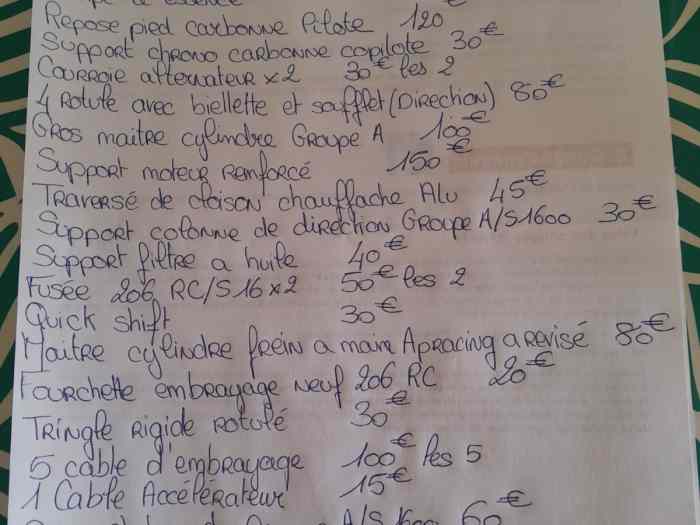 essence
Repose pied carbonne Pilote 120 €
Support chrono carbonne copilote 30€
Courroie alternateur x2 30€ les 2
4 Rotule avec biellette et soufflet (Direction) 80€
Gros maitre cylindre Groupe A 100€
Support moteur renforcé 150€
Traversé de cloison chauffache Alu 45€
Support colonne de direction Groupe A/S1600 30€
Support filtre a huile 40€
Fusée 206 RC/S16 x2 50€ les 2
Quick shift 30€
Maitre cylindre frein a main Apracing a revisé 80€
Fourchette embrayage neuf 206 RC 20€
Tringle rigide rotulé 30€
5 cable d'embrayage 100€ les 5
1 Cable Accélérateur 15€
A/S1600 60€